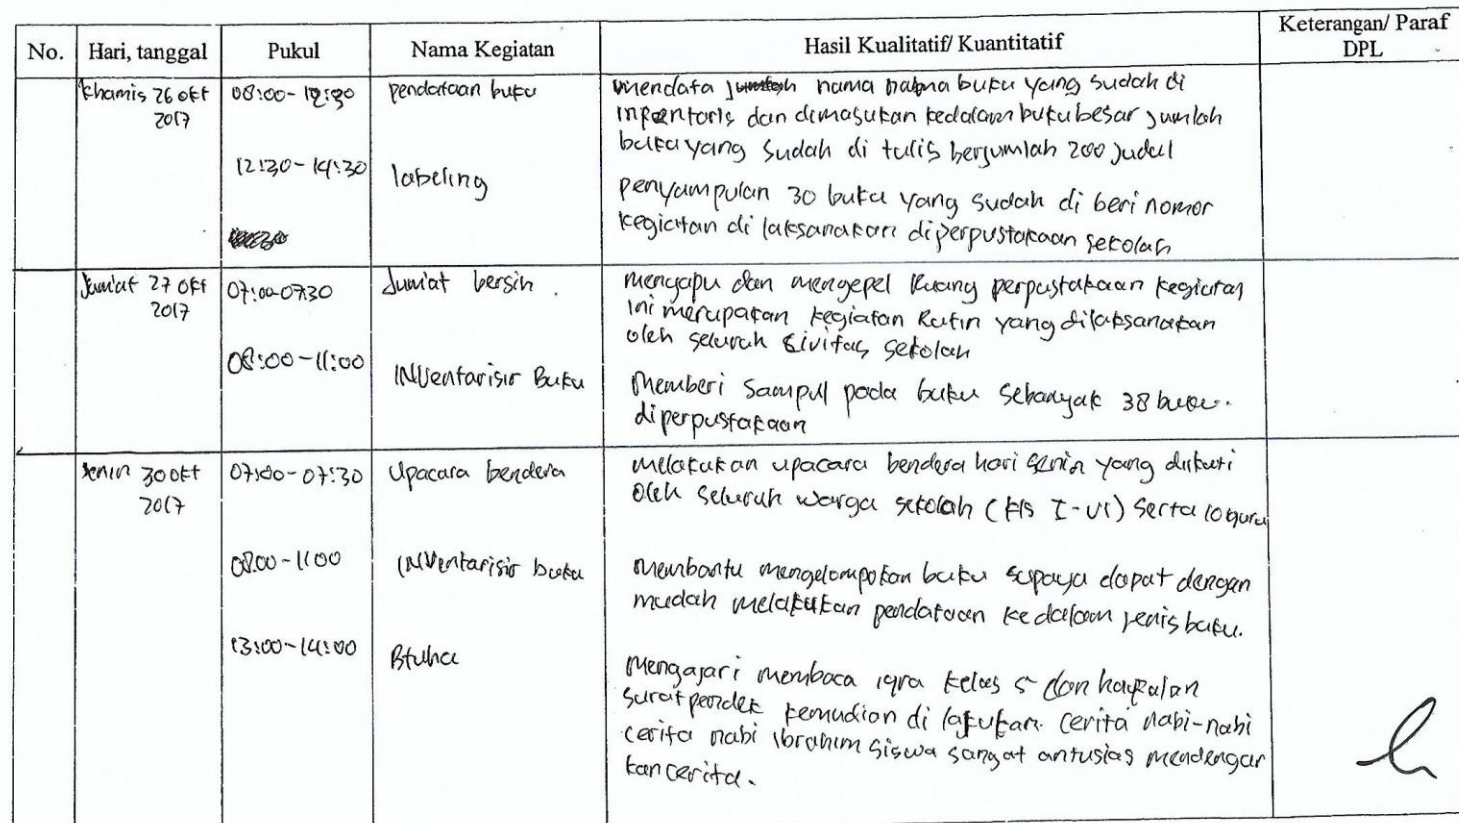 No. Hari, tanggal Pukul Nama Kegiatan Hasil Kualitatif/ Kuantitatif Keterangan/ Paraf DPL
khamis 26 okt 2017
08:00-12:30 pendataan buku
mendata jumlah nama nama buku yang sudah di
inventaris dan dimasukan kedalam buku besar jumlah
buku yang sudah di tulis berjumlah 200 judul
12:30-14:30 labeling
penyampulan 30 buku yang sudah di beri nomor
kegiatan di laksanakan diperpustakaan sekolah
Jum'at 27 okt 2017
07:00-07.30 Jum'at bersih.
menyapu dan mengepel Ruang perpustakaan kegiatan
ini merupakan kegiatan Rutin yang dilaksanakan
oleh seluruh sivitas sekolah
08:00-11:00 INVentarisir Buku
Memberi Sampul pada buku sebanyak 38 buku.
diperpustakaan
senin 30 okt 2017
07:00-07:30 Upacara bendera
melakukan upacara bendera hari senin yang diikuti
oleh seluruh warga sekolah (kls I-VI) serta 10 guru
08.00-11:00 INVentarisir buku
Membantu mengelompokan buku supaya dapat dengan
mudah melakukan pendataan kedalam jenis buku.
13:00-14:00 Btuha
Mengajari membaca iqra kelas 5 dan hapalan
surat pendek kemudian di lakukan. cerita nabi-nabi
cerita nabi ibrahim siswa sangat antusias mendengar
kan cerita.